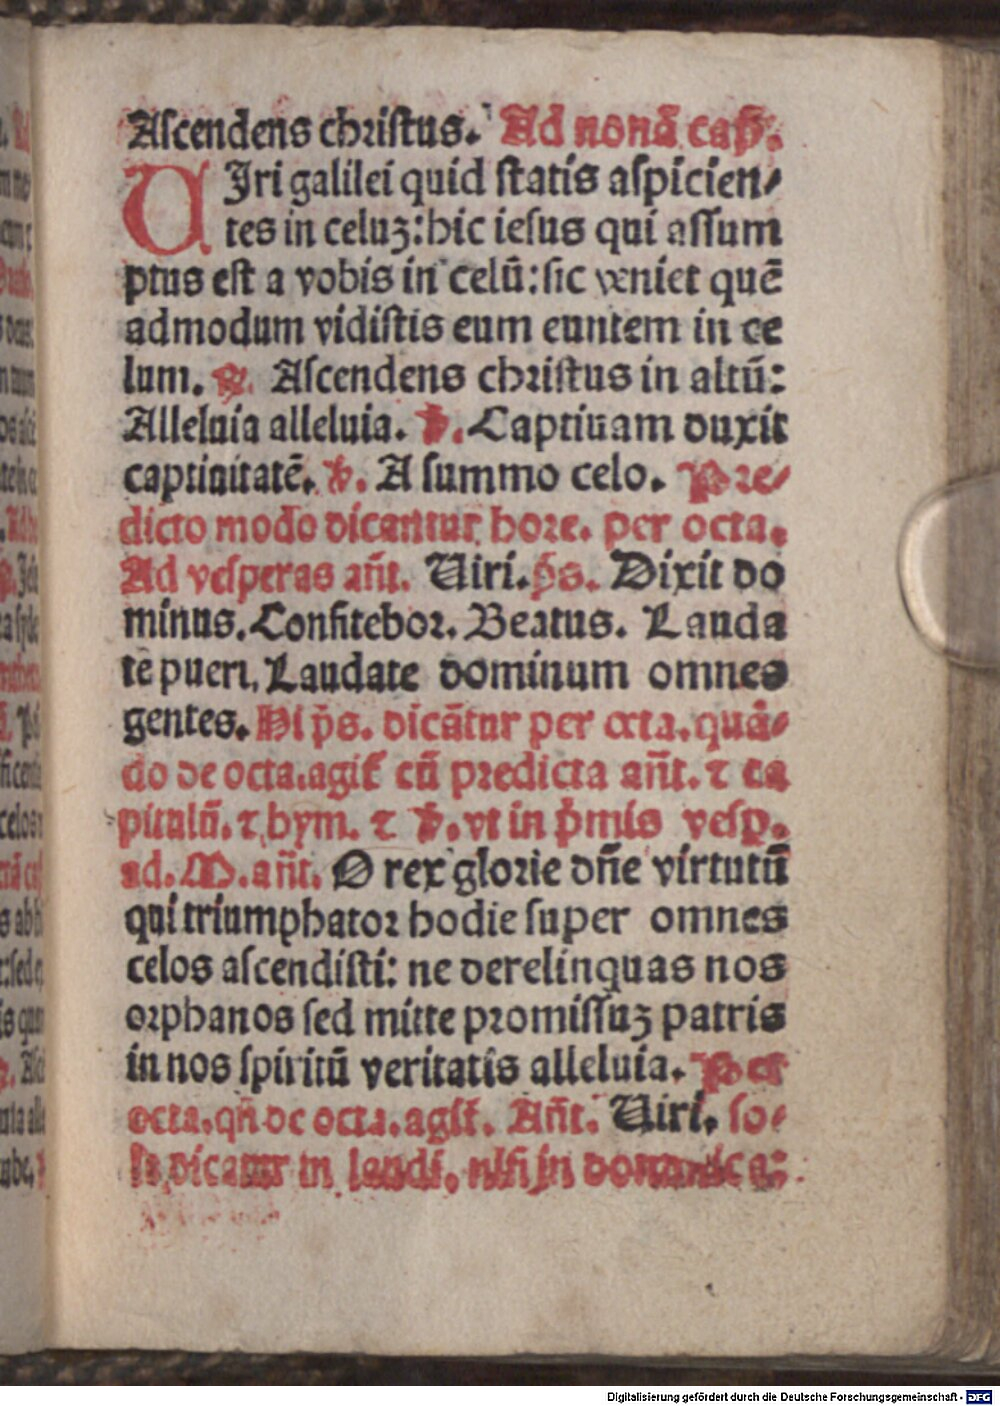 Ascendens christus. Ad nonā cap̄.
UJri galilei quid statis aspicien⸗
tes in celuꝫ: hic iesus qui assum
ptus est a vobis in celū: sic veniet quē
admodum vidistis eum euntem in ce
lum. ℟. Ascendens christus in altū:
Alleluia alleluia. ℣. Captiuam duxit
captiuitatē. ℣. A summo celo. Pre⸗
dicto modo dicantur hore. per octa.
Ad vesperas añt. Uiri. p̄s. Dixit do
minus. Confitebor. Beatus. Lauda
te pueri. Laudate dominum omnes
gentes. Hi p̄s. dicātur per octa. quā⸗
do de octa. agit̄ cū predicta añt. ⁊ ca
pitulū. ⁊ hym. ⁊ ℣. vt in p̄mis vesp.
ad. M. añt. O rex glorie dñe virtutū
qui triumphator hodie super omnes
celos ascendisti: ne derelinquas nos
orphanos sed mitte promissuꝫ patris
in nos spiritū veritatis alleluia. Per
octa. qñ de octa. agit̄. Añt. Uiri. so⸗
la dicatur in laudi. nisi in dominica:
Digitalisierung gefördert durch die Deutsche Forschungsgemeinschaft - DFG